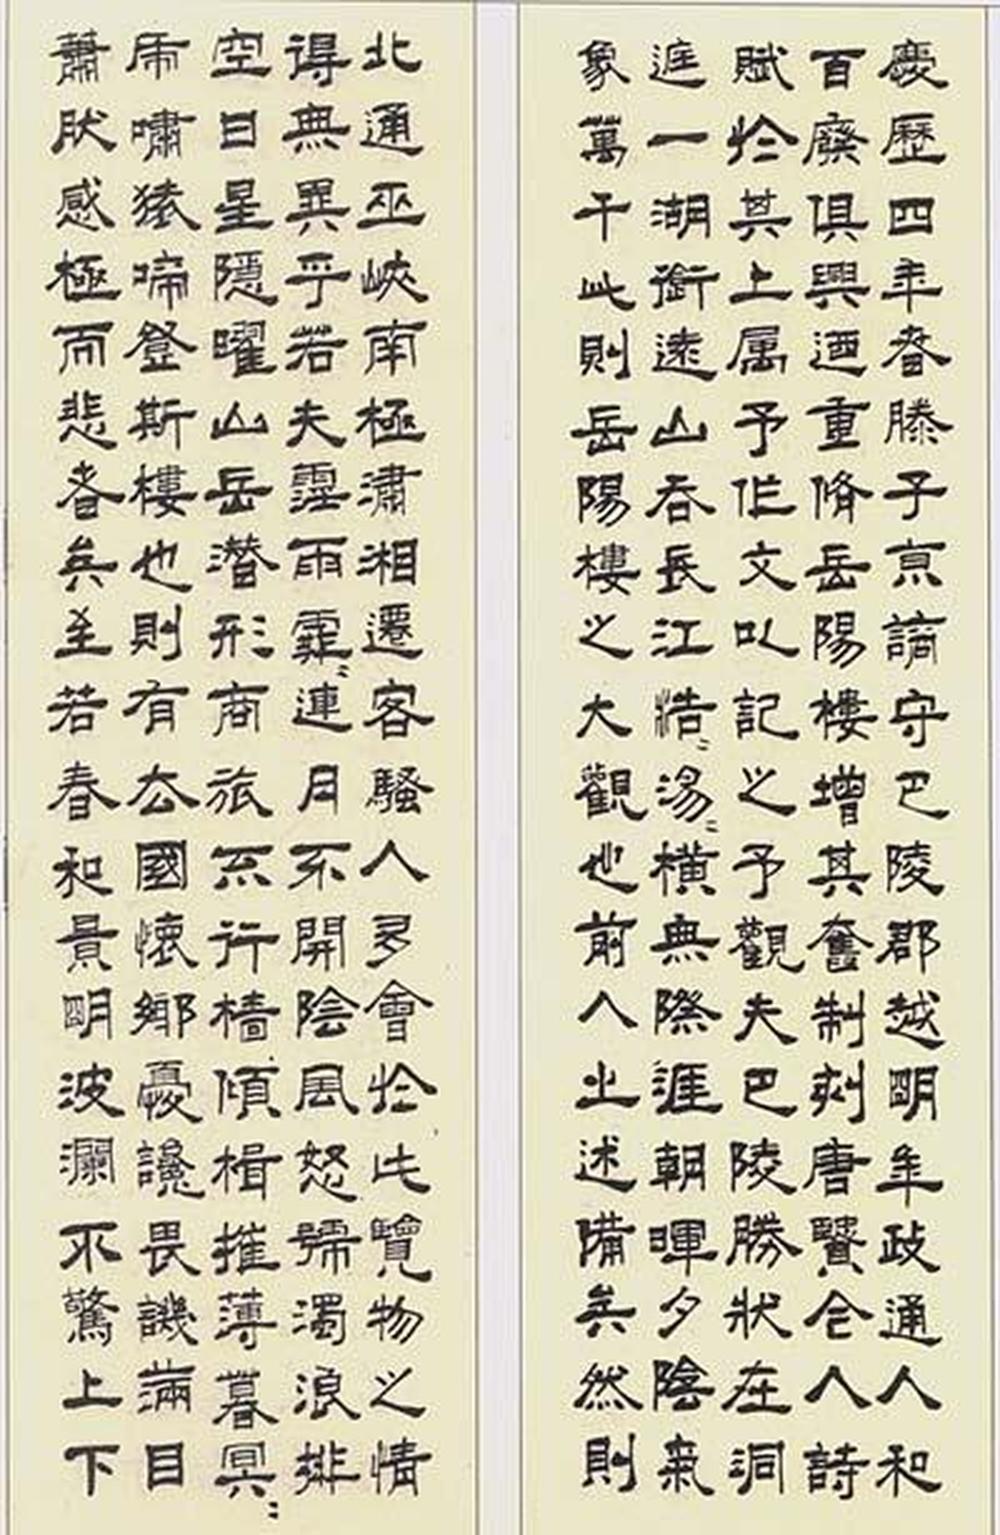 慶歷四年春滕子京謫守巴陵郡越明年政通人和
百廢俱興迺重脩岳陽樓增其舊制刻唐賢今人詩
賦於其上属予作文以記之予觀夫巴陵勝狀在洞
庭一湖銜遠山吞長江浩〻湯〻橫無際涯朝暉夕陰氣
象萬千此則岳陽樓之大觀也前人之述備矣然則
北通巫峽南極瀟湘遷客騷人多會於此覽物之情
得無異乎若夫霪雨霏〻連月不開陰風怒號濁浪排
空日星隱曜山岳潛形商旅不行檣傾楫摧薄暮冥〻
虎嘯猿啼登斯樓也則有去國懷鄉憂讒畏譏滿目
蕭肰感極而悲者矣至若春和景明波瀾不驚上下